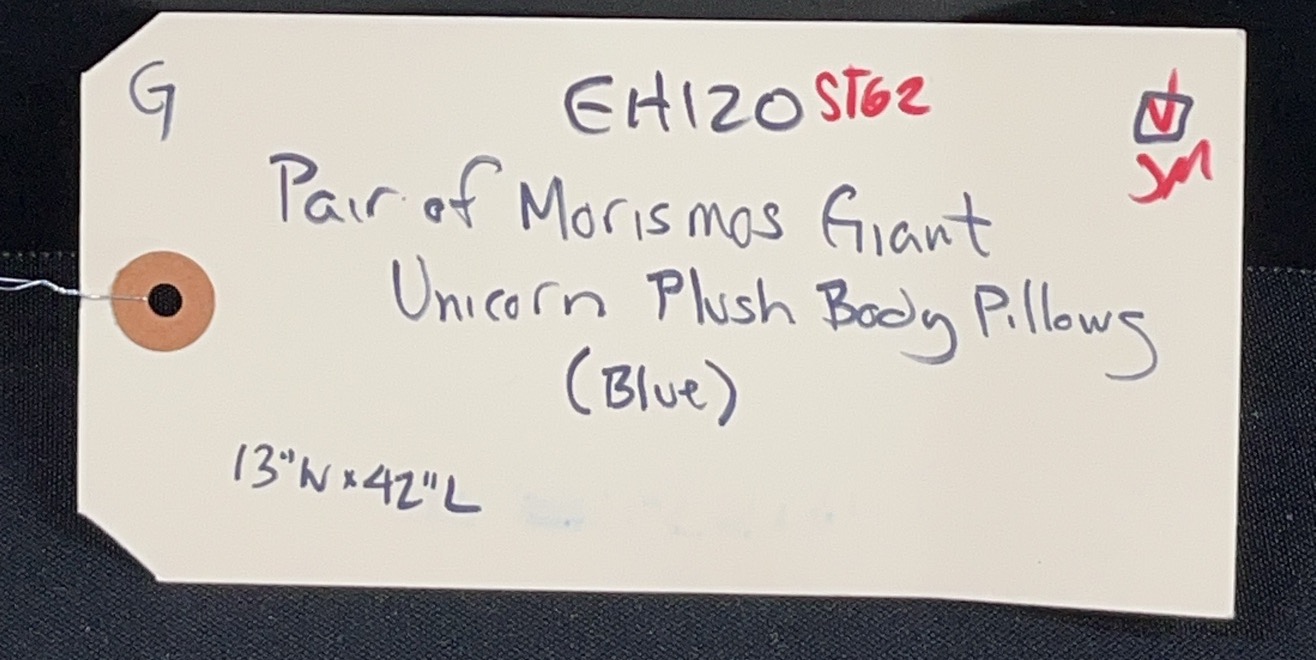 G
EH120 ST62
JM
Pair of Morismos Giant
Unicorn Plush Body Pillows
(Blue)
13"W x 42"L